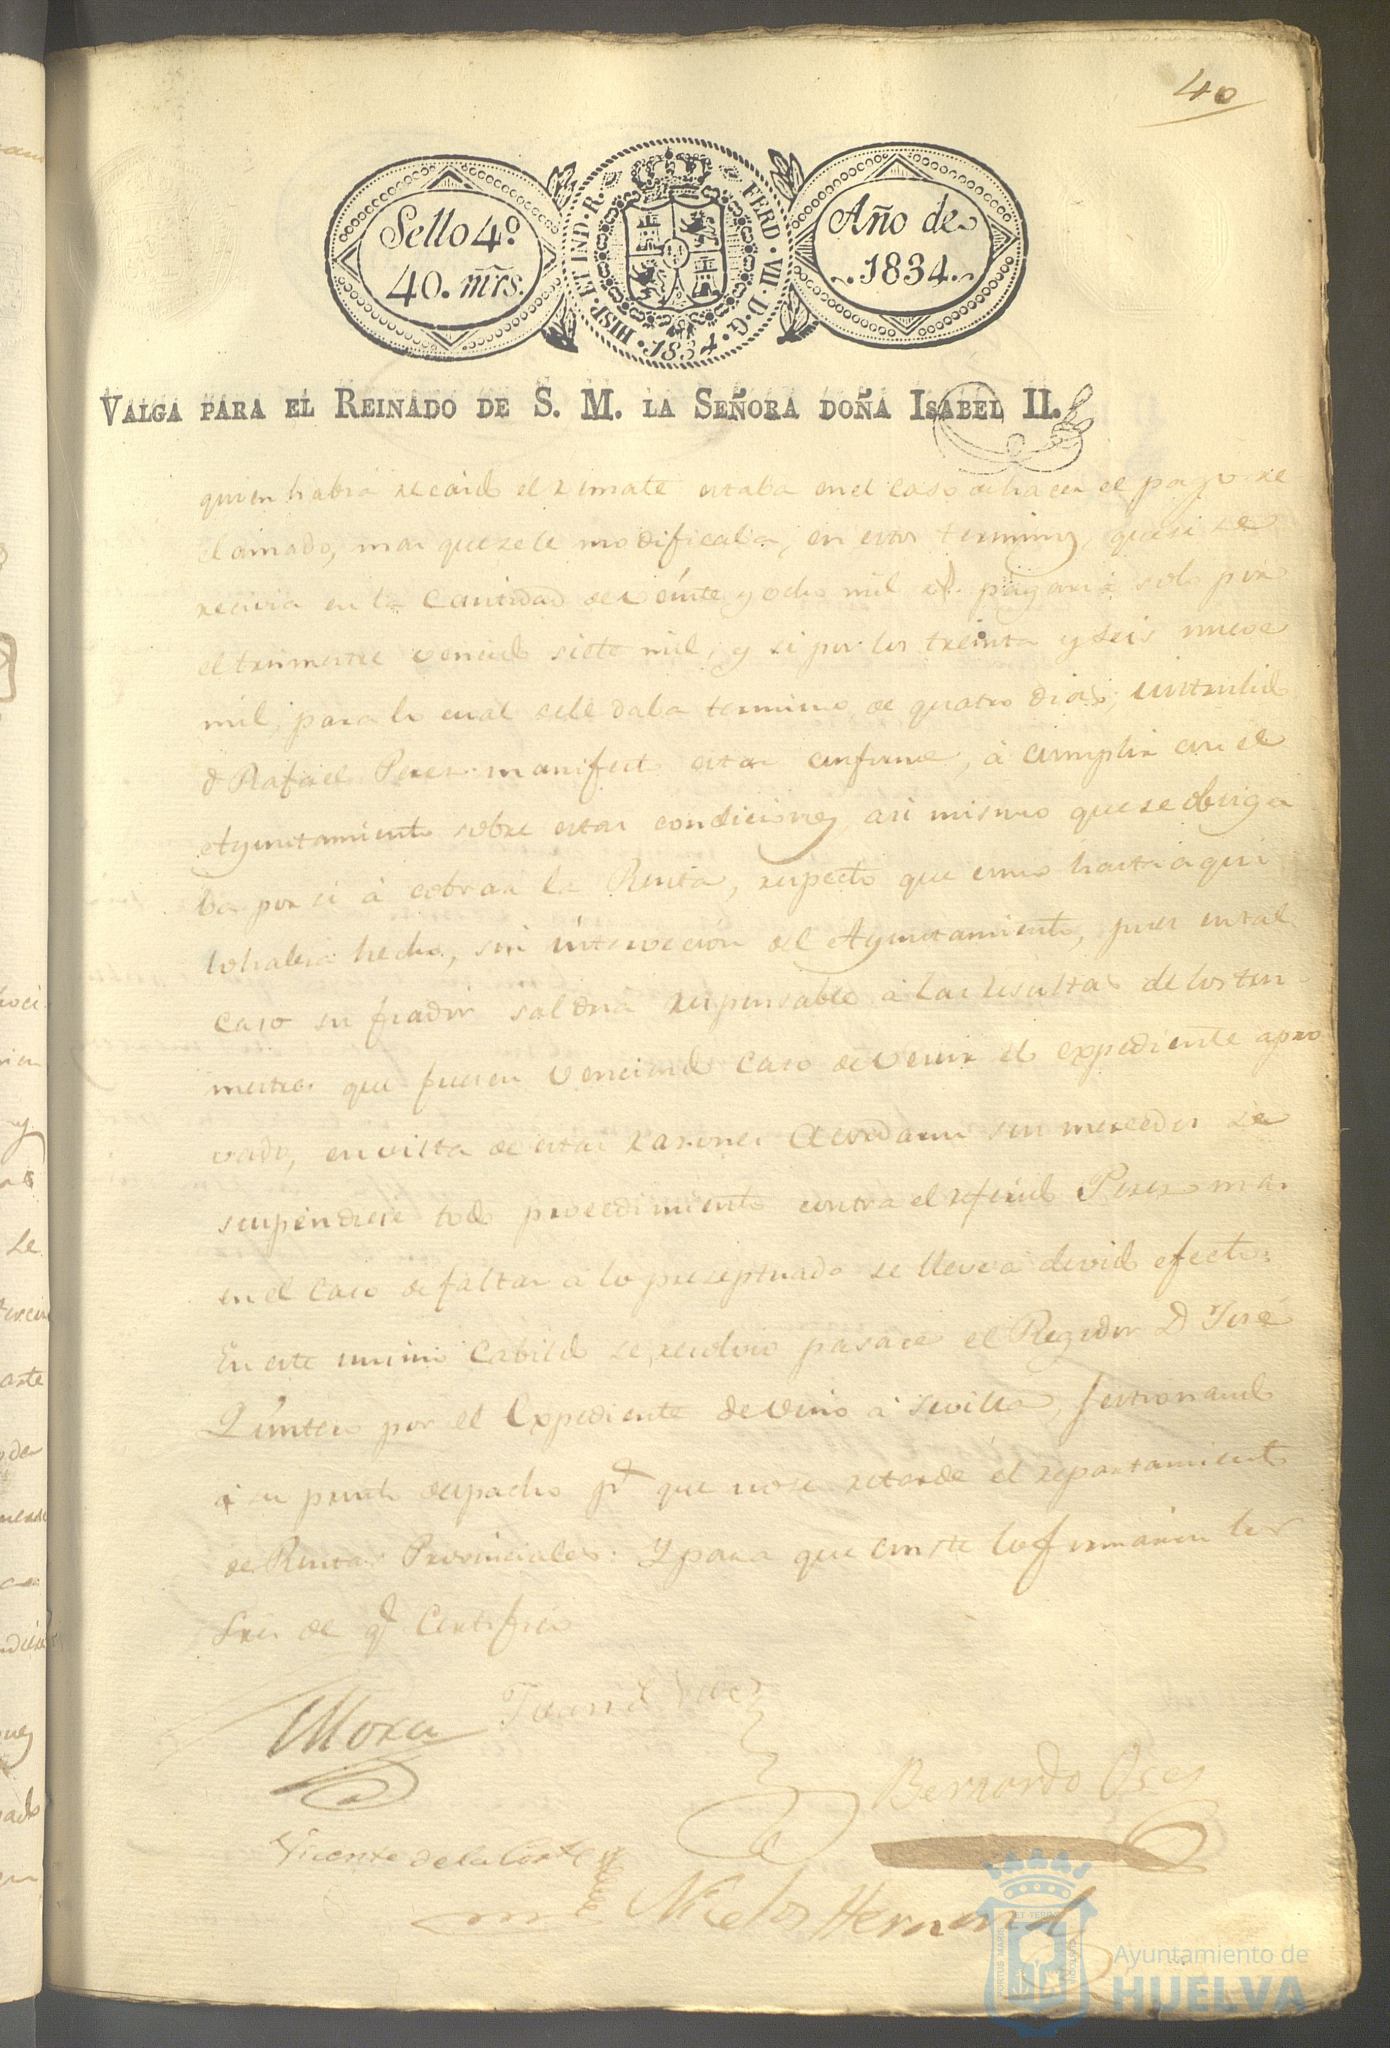 40
Sello 4º
40. mrs.
HISP. ET IND. R. FERD. VII. D. G. 1834.
Año de
1834.
VALGA PARA EL REINADO DE S. M. LA SEÑORA DOÑA ISABEL II.
quien habia recaido el remate estaba en el caso de hacer el pago re
clamado, mas que se le modificaba, en estos terminos, que si se
recivia en la Cantidad de veinte y ocho mil rs. pagaria solo por
el trimestre vencido siete mil, y si por los treinta y seis nueve
mil, para lo cual se le daba termino de quatro dias;
d Rafael Perez manifestó estar conforme, á cumplir con el
Ayuntamiento sobre estas condiciones, asi mismo que se obliga
ba por si á cobrar la Renta, respecto que como hasta aqui
lo habia hecho, sin intervecion del Ayuntamiento, pues en tal
caso su fiador saldria responsable á las resultas de los tri
mestres que fuesen vencidos caso de venir el expediente apro
vado, en vista de estas razones Acordaron sus mercedes se
suspendiese todo procedimiento contra el referido Perez mas
en el caso de faltar á lo preseptuado se lleve á devido efecto:
En este mismo Cabildo se resolvio pasase el Regidor D José
Quintero por el Expediente de vino á Sevilla, jestionando
á su pronto despacho pª que no se retarde el repartimiento
de Rentas Provinciales: Y para que conste lo firmaron los
Sres de q Certifico
Mora
Juan d
Bernardo Oses
Vicente de la Corte
Nicolas Hernand
Ayuntamiento de
HUELVA